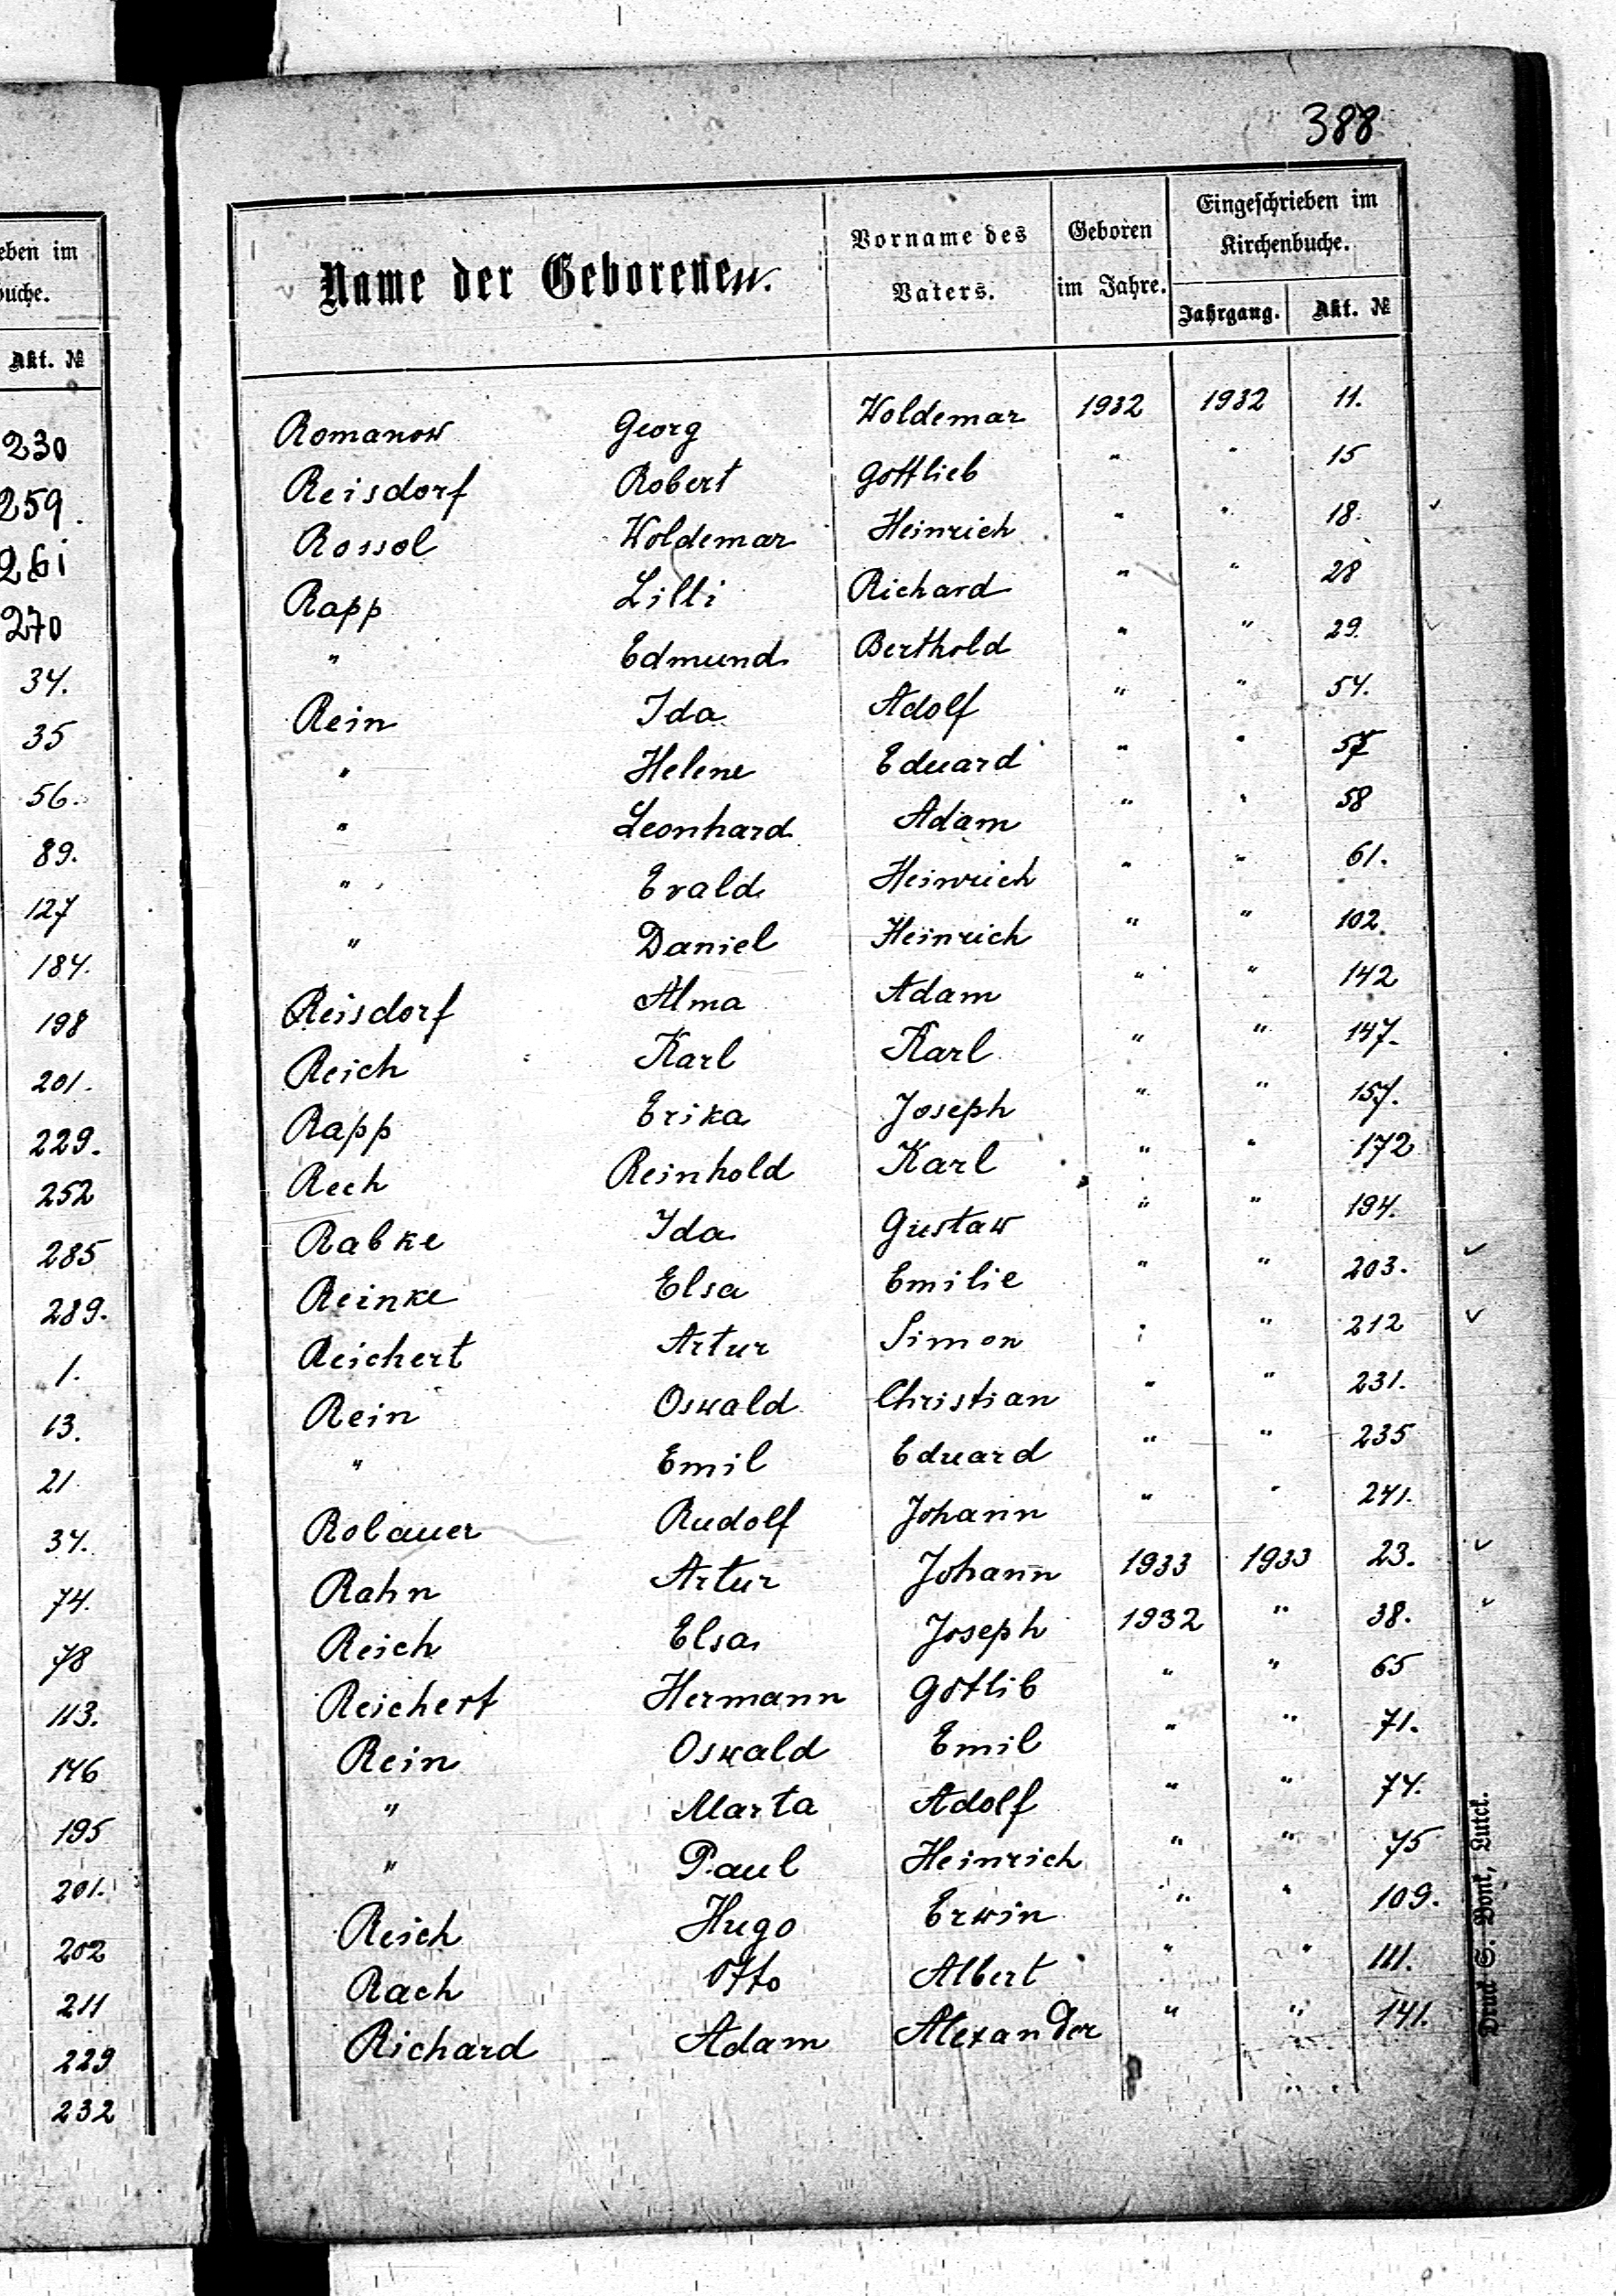 388
Name der Geborenen.
Vorname des Vaters.
Geboren im Jahre.
Eingeschrieben im Kirchenbuche.
Jahrgang. Akt. №
Romanow Georg Woldemar 1932 1932 11.
Reisdorf Robert Gottlieb " " 15
Rossol Woldemar Heinrich " " 18.
Rapp Lilli Richard " " 28
" Edmund Berthold " " 29.
Rein Ida Adolf " " 54.
" Helene Eduard " " 57
" Leonhard Adam " " 58
" Evald Heinrich " " 61.
" Daniel Heinrich " " 102.
Reisdorf Alma Adam " " 142
Reich Karl Karl " " 147.
Rapp Erika Joseph " " 157.
Rech Reinhold Karl " " 172
Rabke Ida Gustaw " " 194.
Reinke Elsa Emilie " " 203.
Reichert Artur Simon " " 212
Rein Oswald Christian " " 231.
" Emil Eduard " " 235
Robauer Rudolf Johann " " 241.
Rahn Artur Johann 1933 1933 23.
Reich Elsa Joseph 1932 " 38.
Reichert Hermann Gottlib " " 65
Rein Oswald Emil " " 71.
" Marta Adolf " " 74.
" Paul Heinrich " " 75
Reich Hugo Erwin " " 109.
Rach Otto Albert " " 111.
Richard Adam Alexander " " 141.
Druck S. Bonk, Luck.
eben im
buche.
Akt. №
230
259.
261
270
34.
35
56.
89.
127
184.
198
201.
229.
252
285
289.
1.
13.
21
34.
74.
78
113.
146
195
201.
202
211
229
232